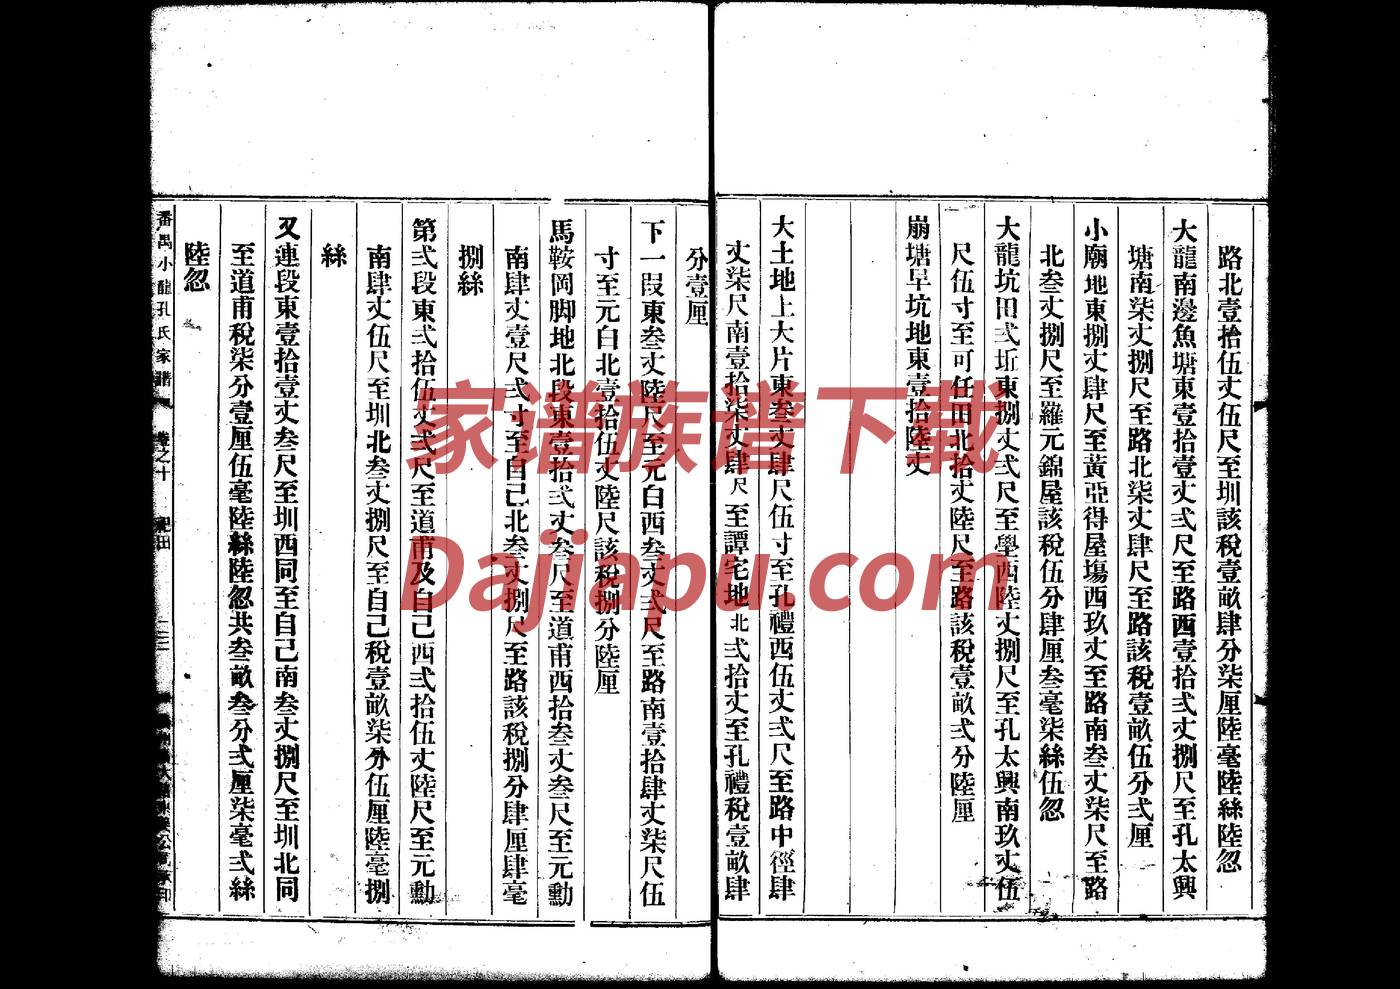 路北壹拾伍丈伍尺至圳該稅壹畝肆分柒厘陸毫陸絲陸忽
大龍南邊魚塘東壹拾壹丈弍尺至路西壹拾弍丈捌尺至孔太興
塘南柒丈捌尺至路北柒丈肆尺至路該稅壹畝伍分弍厘
小廟地東捌丈肆尺至黃亞得屋塲西玖丈至路南叁丈柒尺至路
北叁丈捌尺至羅元錦屋該稅伍分肆厘叁毫柒絲伍忽
大龍坑田弍坵東捌丈弍尺至壆西陸丈捌尺至孔太興南玖丈伍
尺伍寸至可任田北拾丈陸尺至路該稅壹畝弍分陸厘
崩塘旱坑地東壹拾陸丈
大土地上大片東叁丈肆尺伍寸至孔禮西伍丈弍尺至路中徑肆
丈柒尺南壹拾柒丈肆尺至譚宅地北弍拾丈至孔禮稅壹畝肆
分壹厘
下一段東叁丈陸尺至元白西叁丈弍尺至路南壹拾肆丈柒尺伍
寸至元白北壹拾伍丈陸尺該稅捌分陸厘
馬鞍岡脚地北段東壹拾弍丈叁尺至道甫西拾叁丈叁尺至元勳
南肆丈壹尺弍寸至自己北叁丈捌尺至路該稅捌分肆厘肆毫
捌絲
第弍段東弍拾伍丈弍尺至道甫及自己西弍拾伍丈陸尺至元勳
南肆丈伍尺至圳北叁丈捌尺至自己稅壹畝柒分伍厘陸毫捌
絲
又連段東壹拾壹丈叁尺至圳西同至自己南叁丈捌尺至圳北同
至道甫稅柒分壹厘伍毫陸絲陸忽共叁畝叁分弍厘柒毫弍絲
陸忽
番禺小龍孔氏家譜 卷之十 祀田
家谱族谱下载
Dajiapu.com